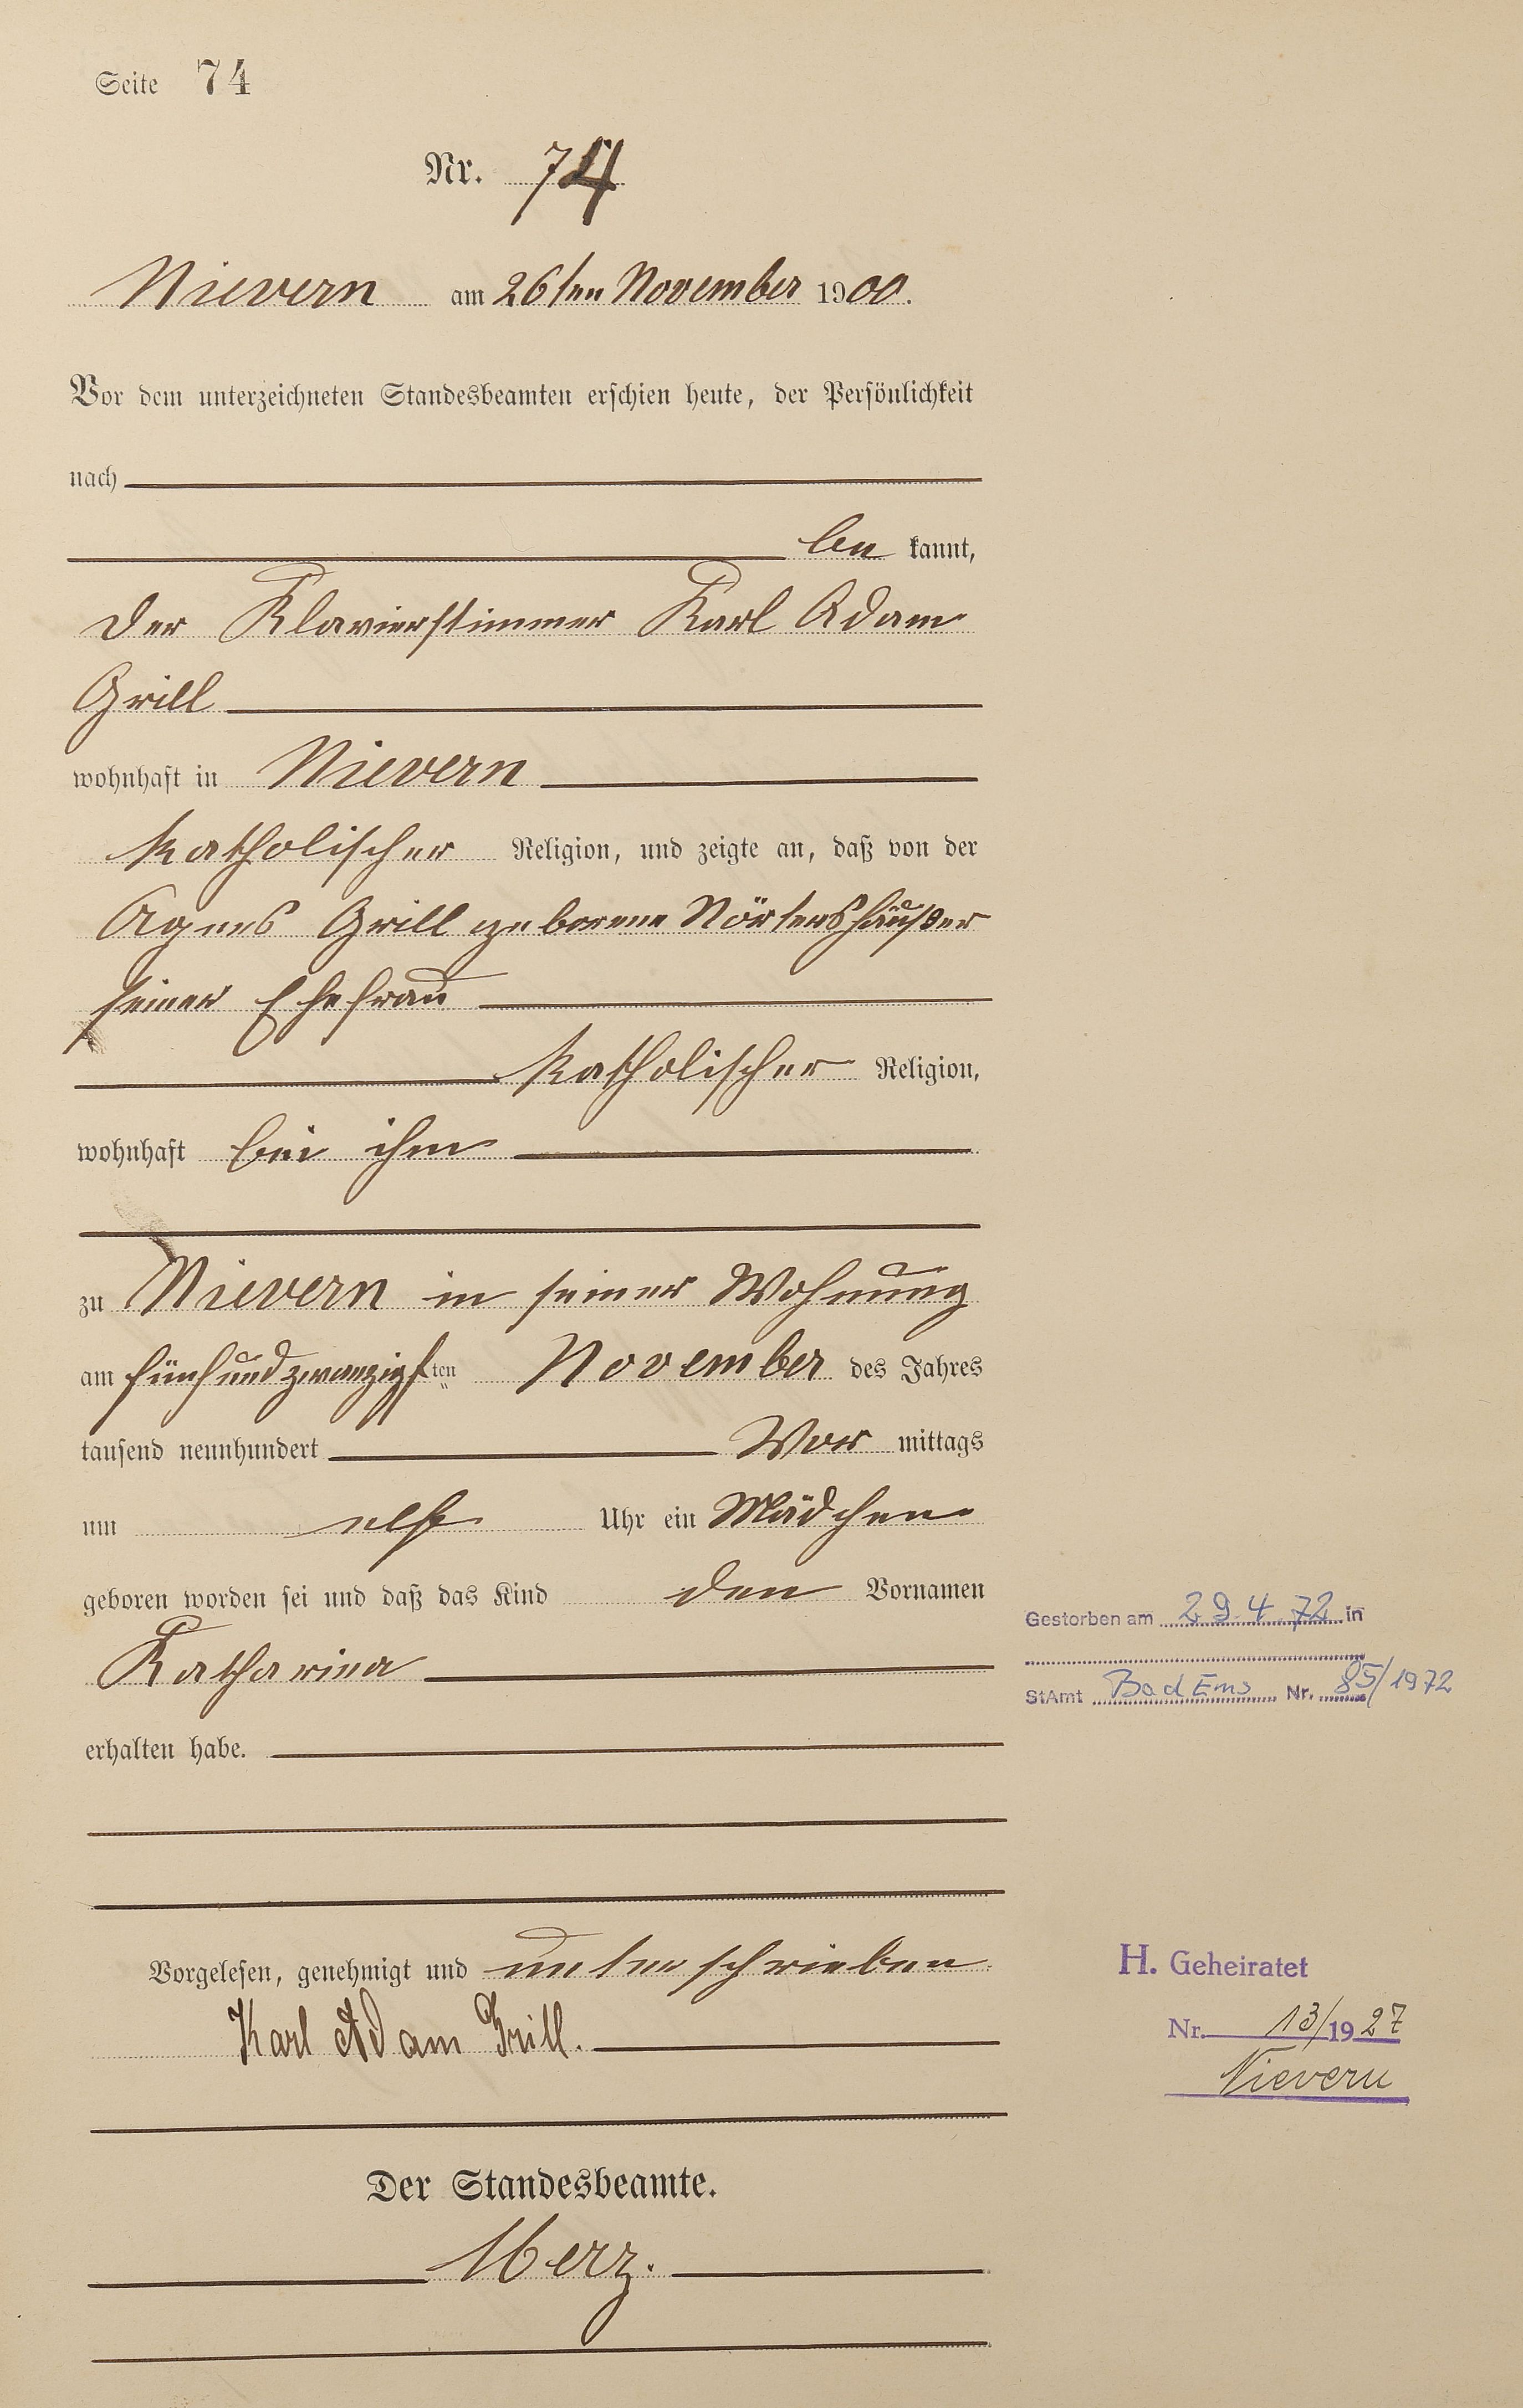 Seite 74
Nr. 74
Nievern am 26ten November 1900.
Vor dem unterzeichneten Standesbeamten erschien heute, der Persönlichkeit
nach
be kannt,
der Klavierstimmer Karl Adam
Grill
wohnhaft in Nievern
katholischer Religion, und zeigte an, daß von der
Agnes Grill geborene Nörtershäußer
seiner Ehefrau
katholischer Religion,
wohnhaft bei ihm
zu Nievern in seiner Wohnung
am fünfundzwanzigsten November des Jahres
tausend neunhundert Vor mittags
um elf Uhr ein Mädchen
geboren worden sei und daß das Kind den Vornamen
Katharina
erhalten habe.
Gestorben am 29.4.72 in
StAmt Bad Ems Nr. 85/1972
Vorgelesen, genehmigt und unterschrieben
Karl Adam Grill.
H. Geheiratet
Nr. 13/1927
Nievern
Der Standesbeamte.
Merz.